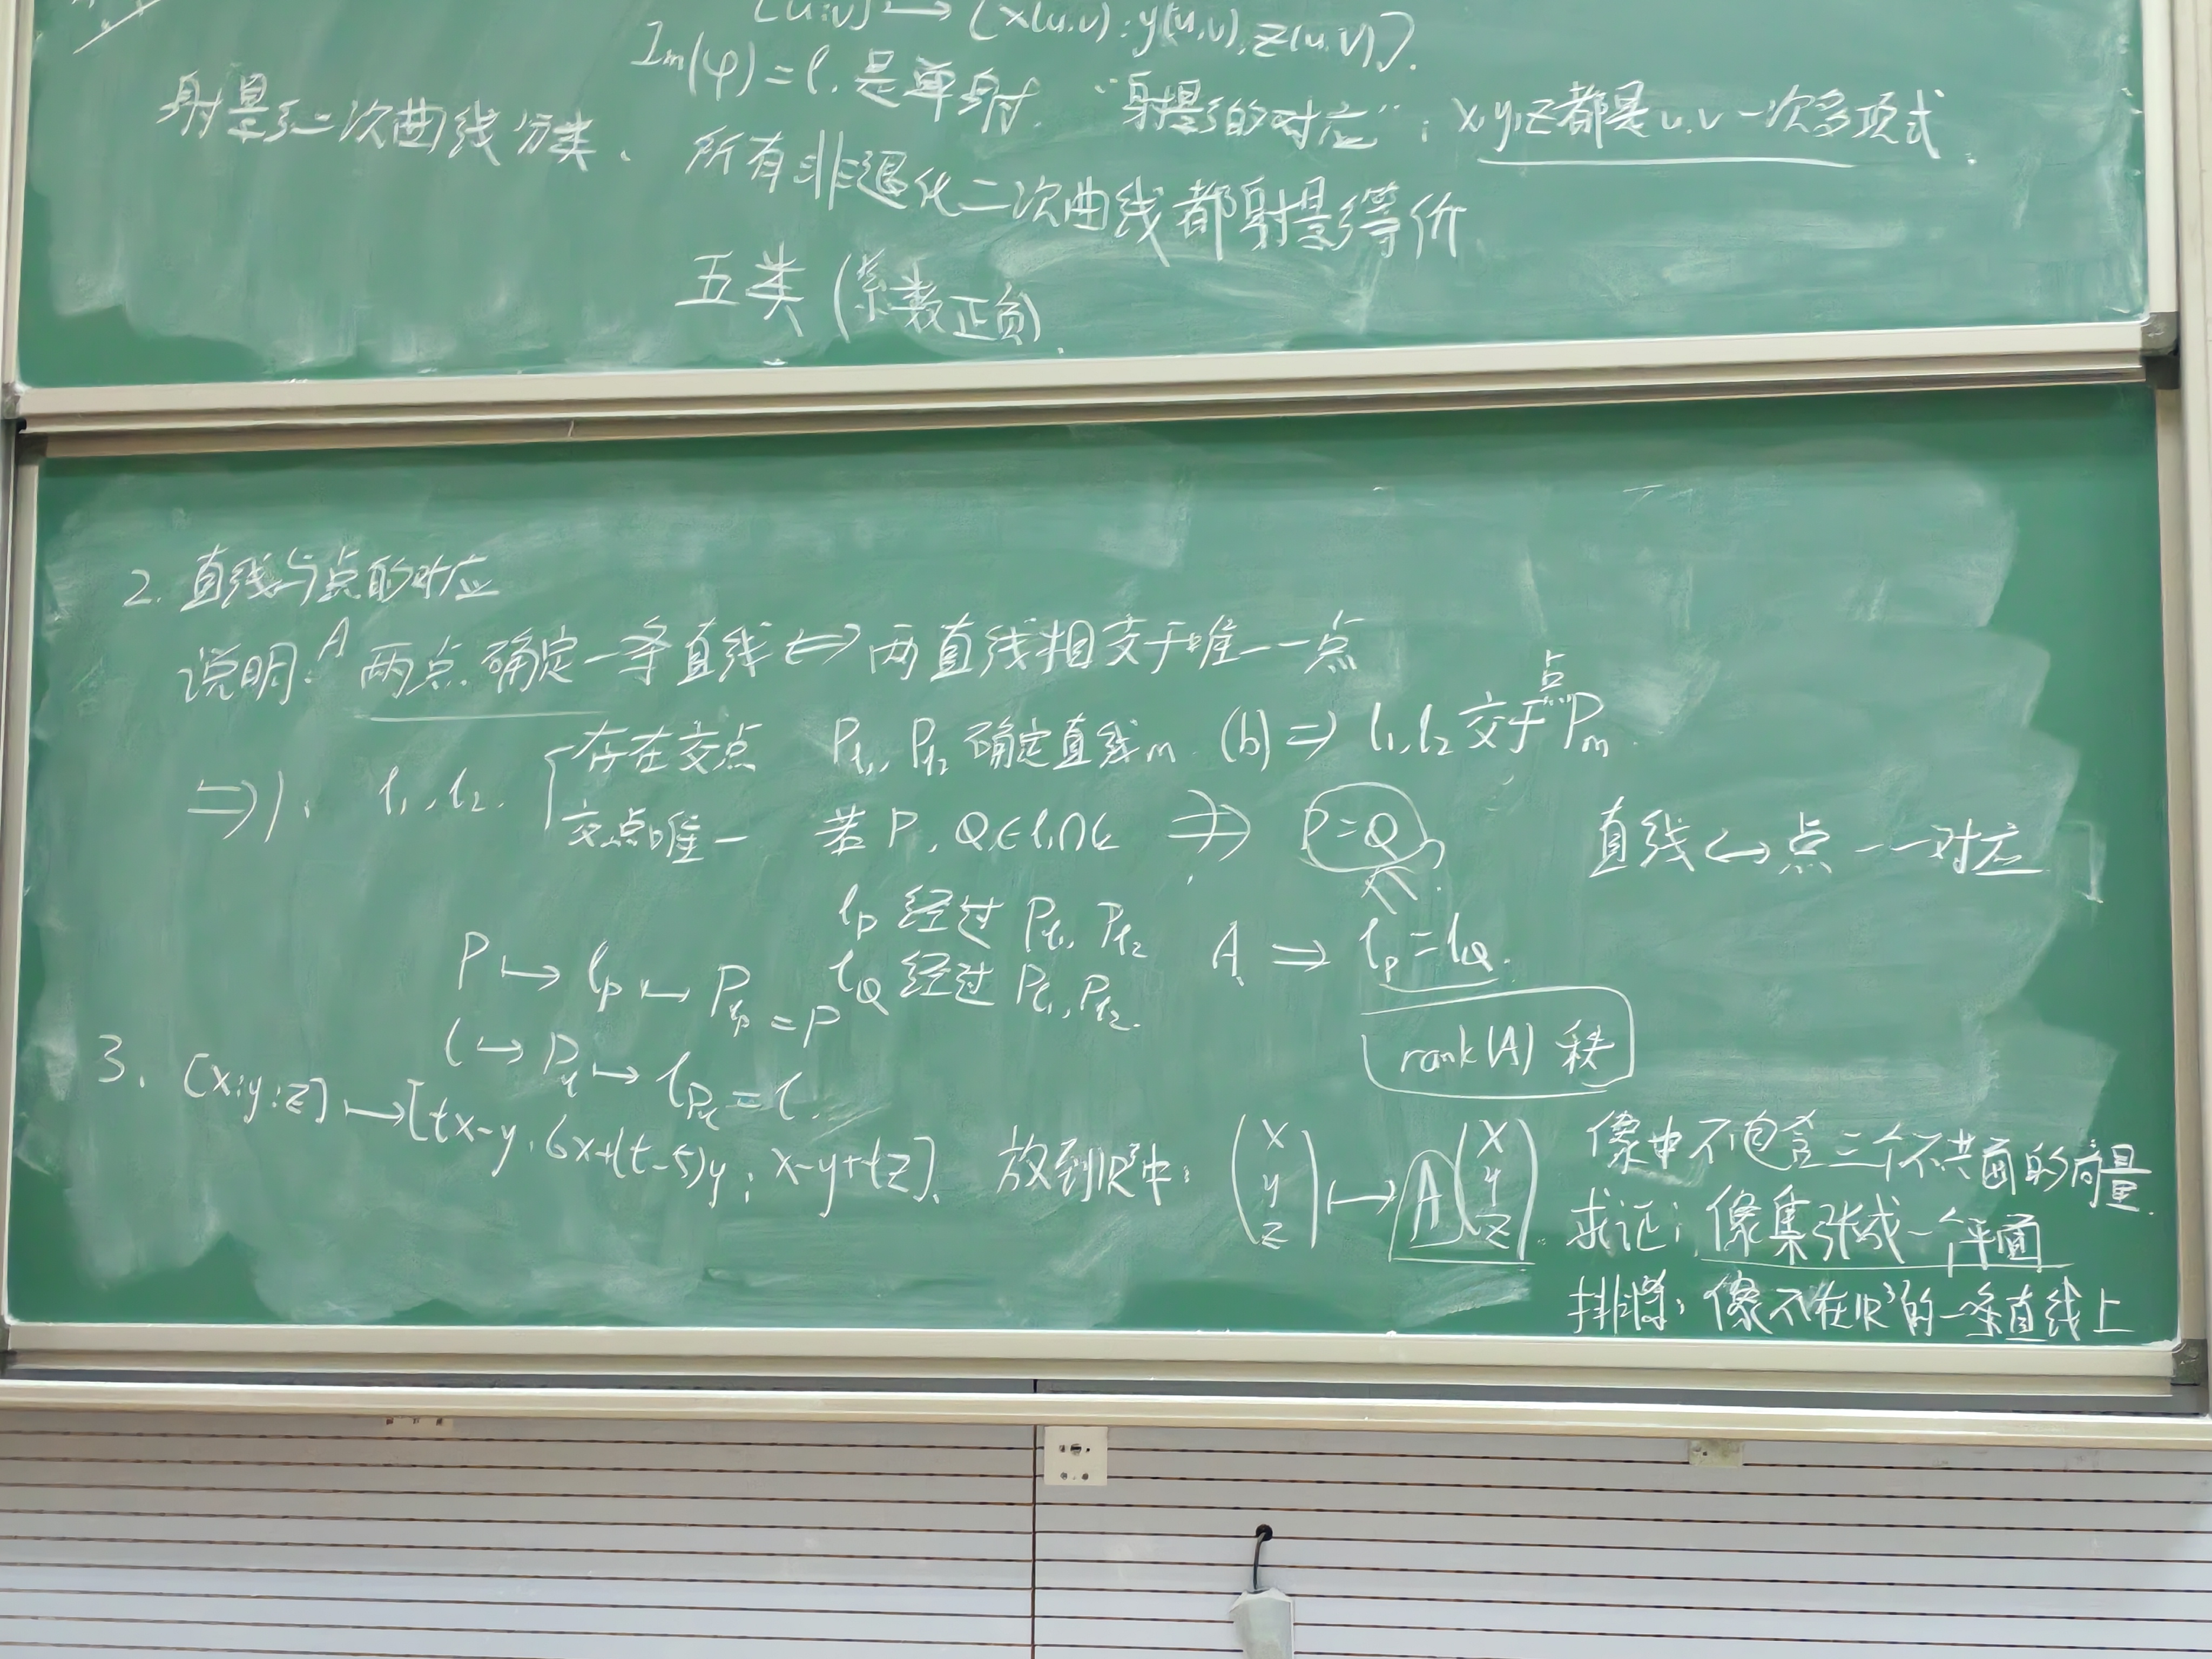 [u:v] ⟼ [x(u,v):y(u,v),z(u,v)].
Im(φ)=l. 是单射. “射影的对应”: x,y,z都是u,v一次多项式.
射影二次曲线分类、 所有非退化二次曲线都射影等价
五类 (系数正负).
2. 直线与点的对应
说明: A 两点确定一条直线 ⟺ 两直线相交于唯一一点
⇒). l₁, l₂. { 存在交点 P_{l₁}, P_{l₂} 确定直线m. (b) ⇒ l₁, l₂ 交于点P_m.
交点唯一 若 P, Q ∈ l₁∩l₂ ⇒ P=Q
直线 ↔ 点 一一对应
l_P 经过 P_{l₁}, P_{l₂} A ⇒ l_P = l_Q.
l_Q 经过 P_{l₁}, P_{l₂}.
P ⟼ l_P ⟼ P_{l_P} = P
l ⟼ P_l ⟼ l_{P_l} = l.
rank(A) 秩
3. [x:y:z] ⟼ [tx-y:6x+(t-5)y:x-y+tz]. 放到ℝ³中: (x y z) ⟼ A (x y z).
像中不包含三个不共面的向量.
求证: 像集张成一个平面
排除: 像不在ℝ³的一条直线上